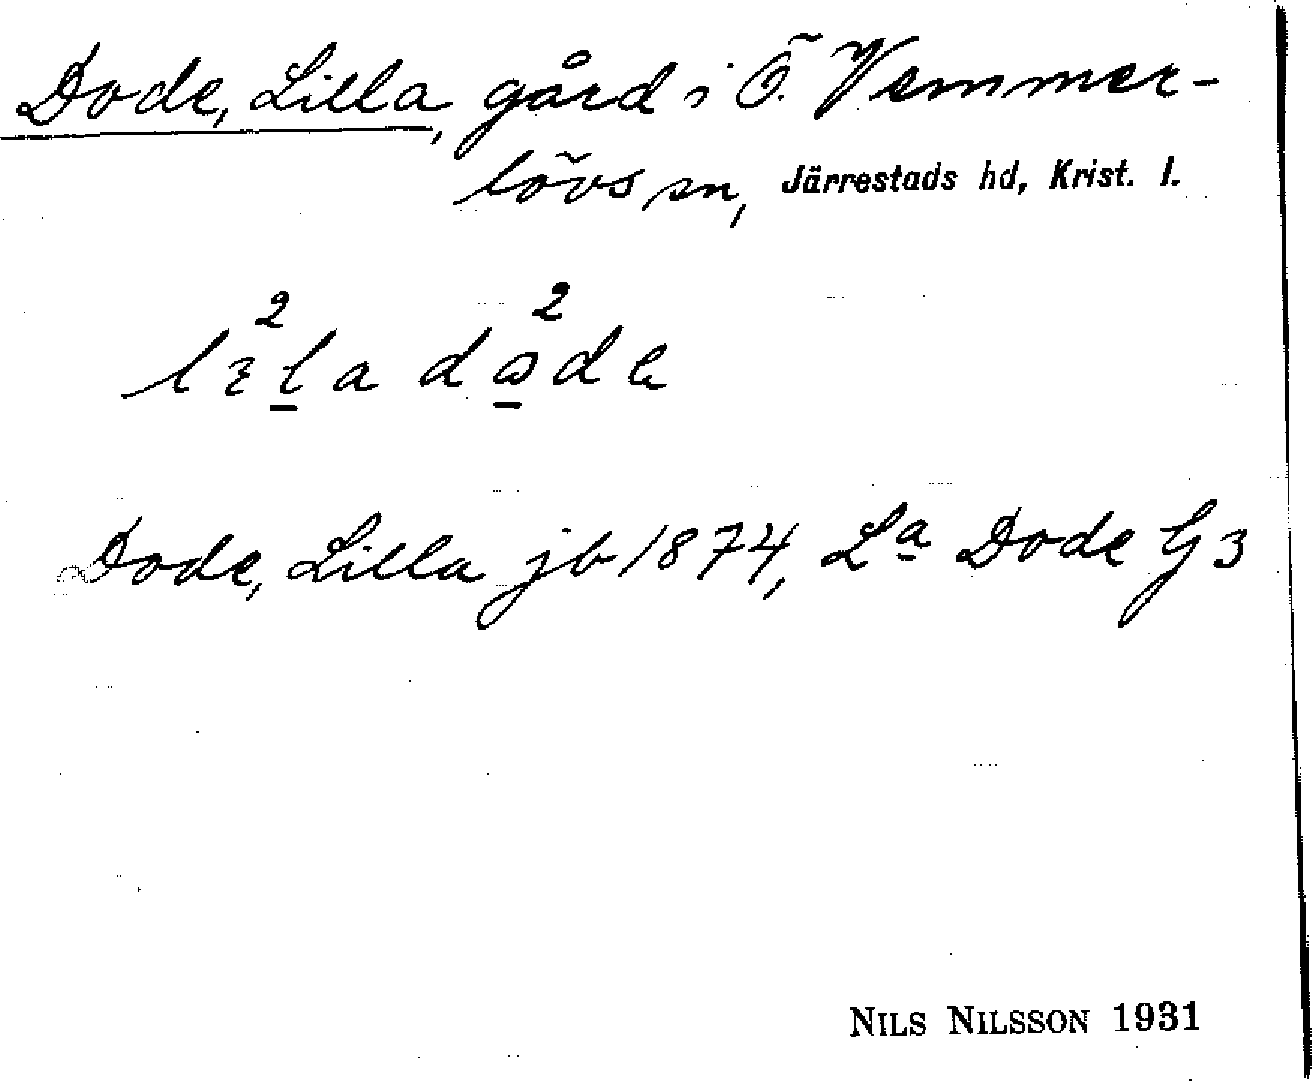 Dode, Lilla, gård i Ö. Vemmer-
lövs sn, Järrestads hd, Krist. l.
Dode, Lilla jb 1874, La Dode G3
NILS NILSSON 1931